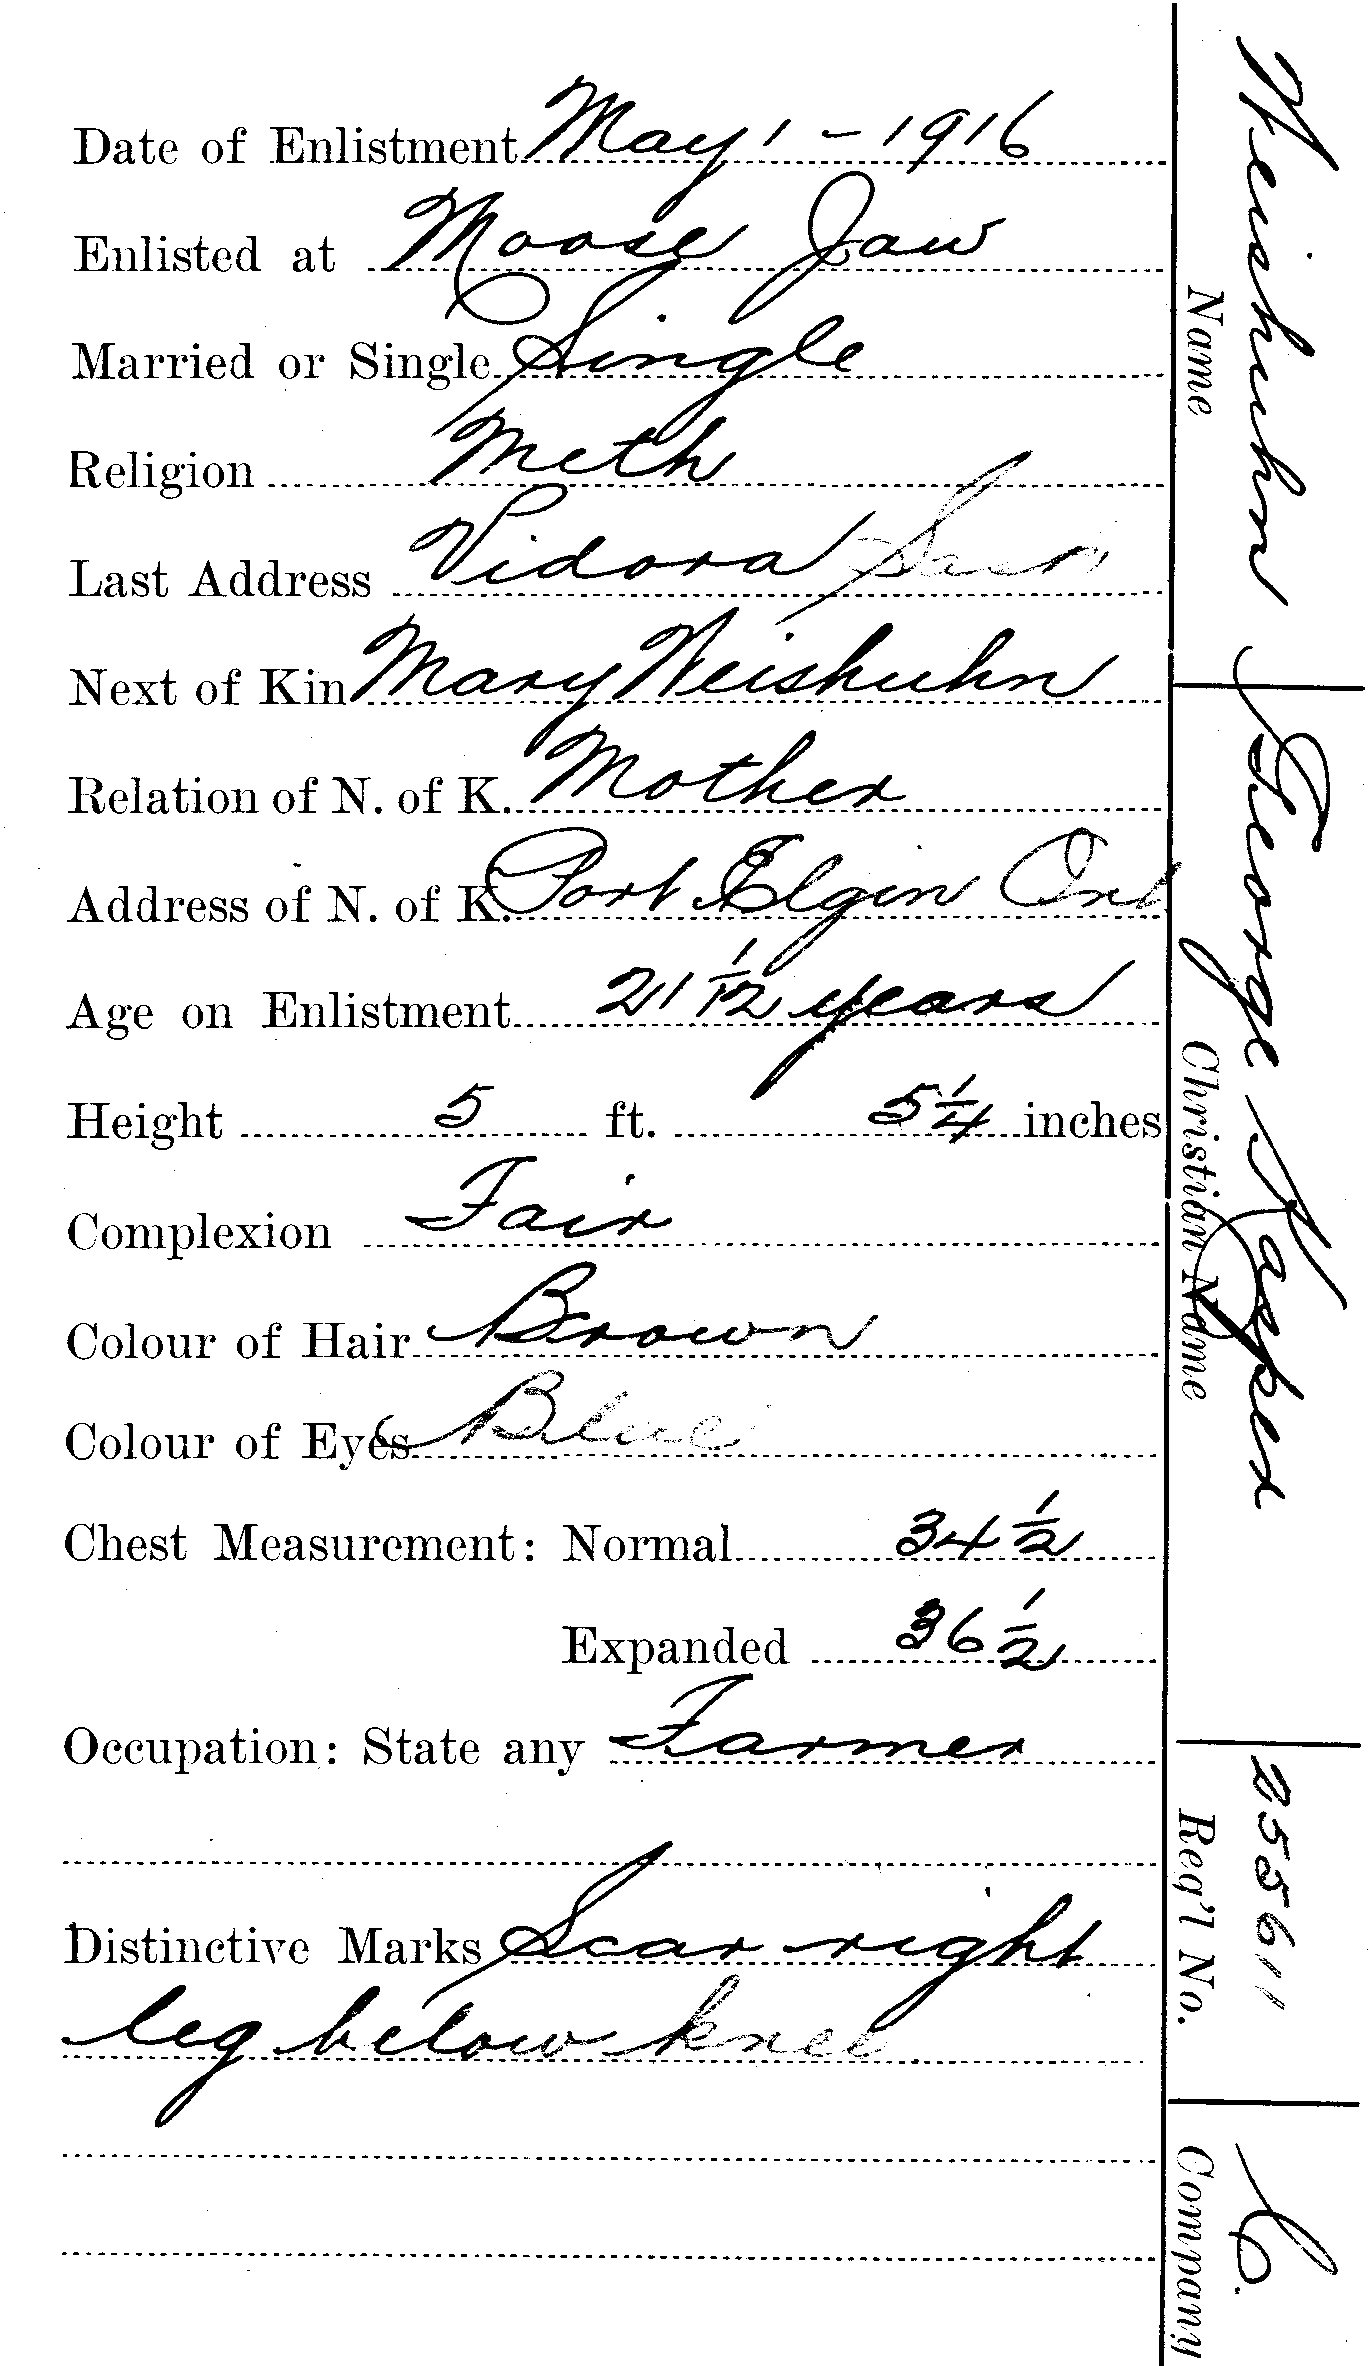 Date of Enlistment May 1 - 1916
Enlisted at Moose Jaw
Married or Single Single
Religion Meth
Last Address Vidora Sask
Next of Kin Mary Weishuhn
Relation of N. of K. Mother
Address of N. of K. Port Elgin Ont
Age on Enlistment 21 1/12 years
Height 5 ft. 5 1/4 inches
Complexion Fair
Colour of Hair Brown
Colour of Eyes Blue
Chest Measurement: Normal 34 1/2
Expanded 36 1/2
Occupation: State any Farmer
Distinctive Marks Scar right
leg below knee
Weishuhn George Kasper 255611 C.
Name Christian Name Reg'l No. Company